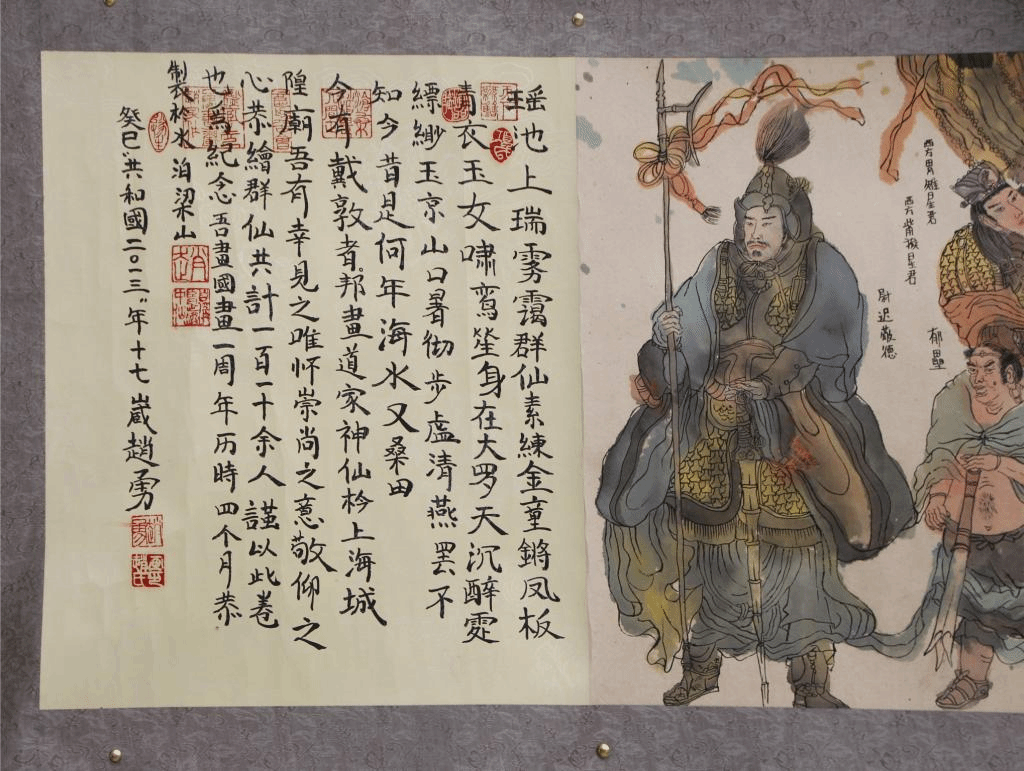 郁壘
西方胃雉星君
西方觜猴星君
尉迟敬德
瑶池上瑞雾霭群仙素練金童鏘凤板
青衣玉女啸鸾笙身在大罗天沉醉处
縹緲玉京山彻步虚清燕罢不
知今昔是何年海水又桑田
今有戴敦者邦畫道家神仙於上海城
隍廟吾有幸見之唯怀崇尚之意敬仰之
心恭繪群仙共計一百一十余人謹以此卷
也為紀念吾畫國畫一周年历時四个月恭
製於水泊梁山
癸巳共和國二〇一三年十七嵗趙勇